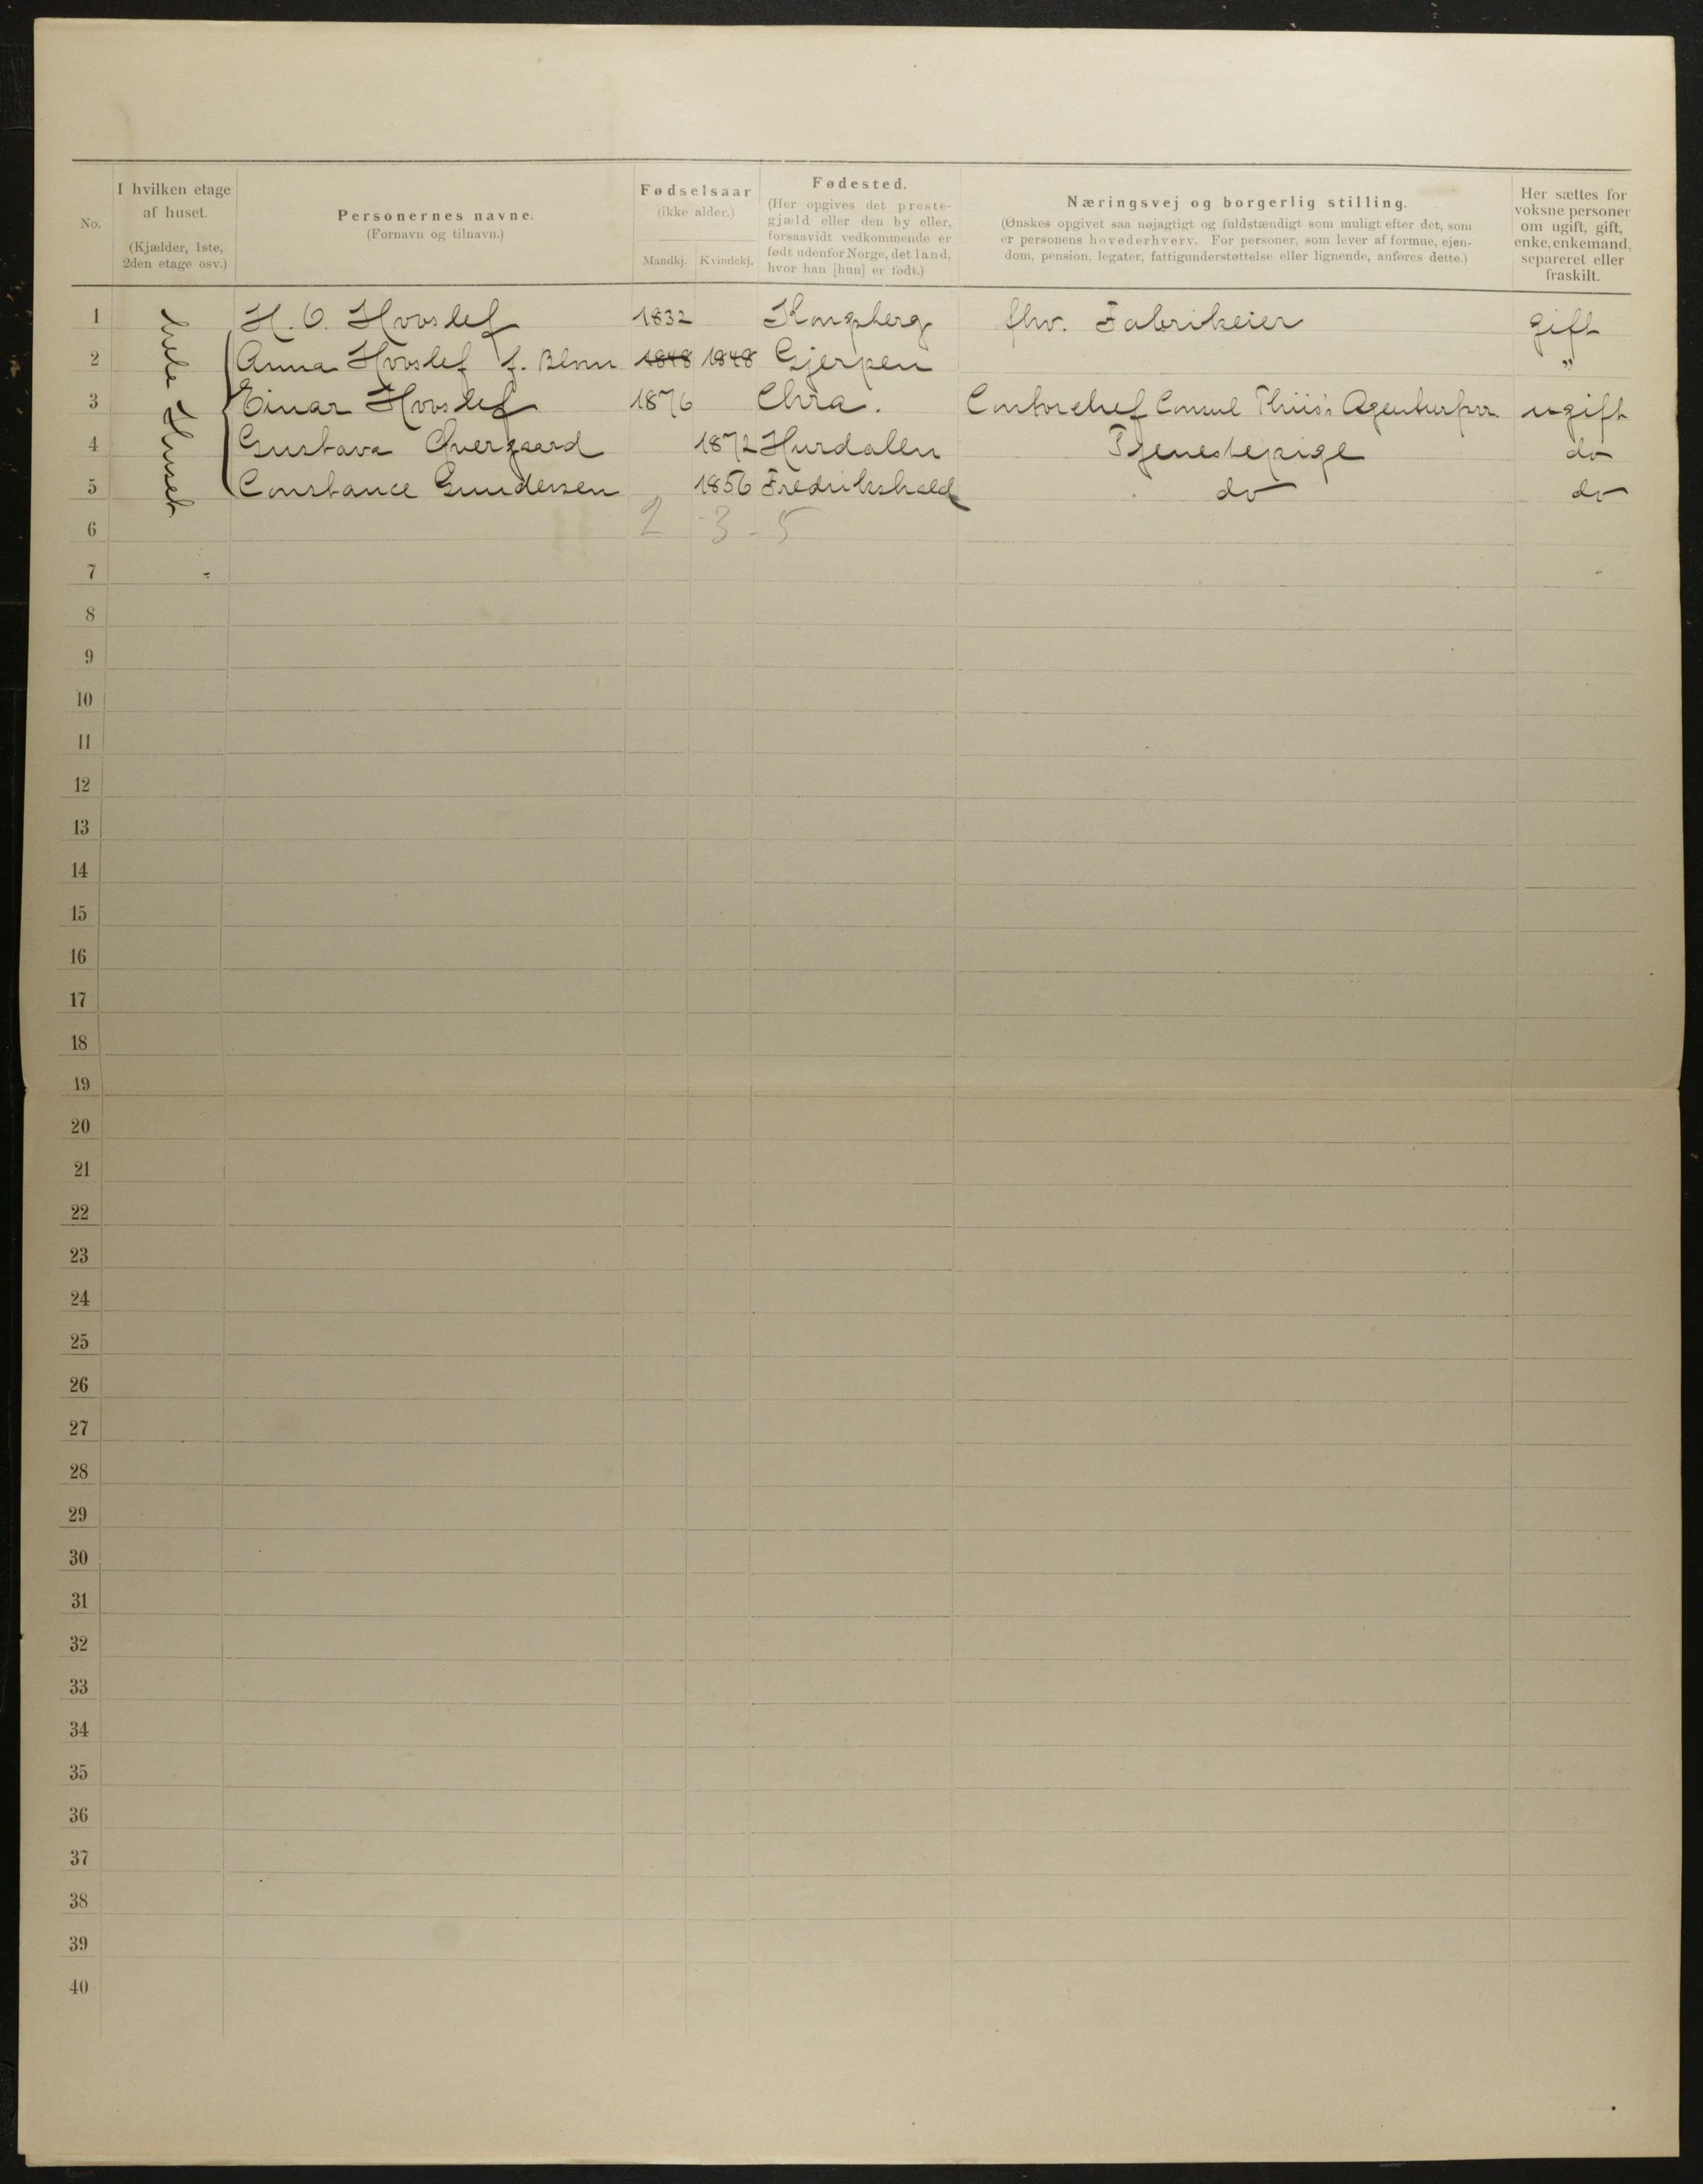 No.
I hvilken etage
af huset.
(Kjælder, 1ste,
2den etage osv.)
Personernes navne.
(Fornavn og tilnavn.)
Fødselsaar
(ikke alder.)
Mandkj. Kvindekj.
Fødested.
(Her opgives det preste-
gjæld eller den by eller,
forsaavidt vedkommende er
født udenfor Norge, det land,
hvor han [hun] er født.)
Næringsvej og borgerlig stilling.
(Ønskes opgivet saa nøjagtigt og fuldstændigt som muligt efter det, som
er personens hovederhverv. For personer, som lever af formue, ejen-
dom, pension, legater, fattigunderstøttelse eller lignende, anføres dette.)
Her sættes for
voksne personer
om ugift, gift,
enke, enkemand,
separeret eller
fraskilt.
hele Huset
1 H. O. Hovslef 1832 Kongsberg fhv. Fabrikeier gift
2 Anna Hovslef f. Blom 1848 1848 Gjerpen "
3 Einar Hovslef 1876 Chra. Contorchef Consul Thiis's Agenturforr. ugift
4 Gustava Overgaard 1872 Hurdalen Tjenestepige do
5 Constance Gundersen 1856 Fredrikshald do do
6 2 - 3 - 5
7
8
9
10
11
12
13
14
15
16
17
18
19
20
21
22
23
24
25
26
27
28
29
30
31
32
33
34
35
36
37
38
39
40